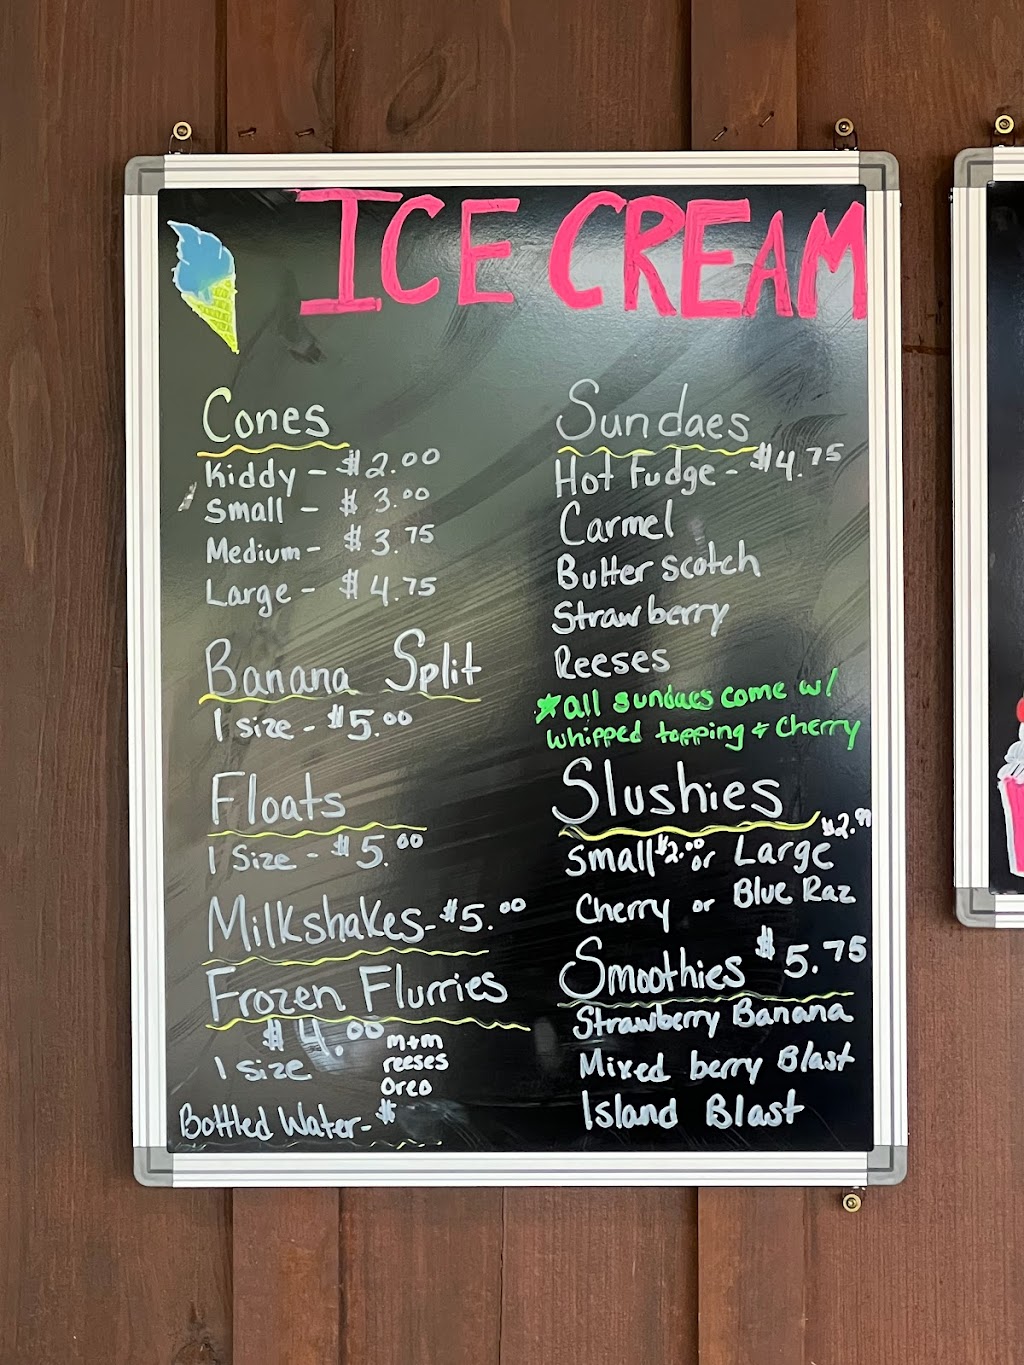 ICE CREAM
Cones
Kiddy - $2.00
Small - $3.00
Medium - $3.75
Large - $4.75
Banana Split
1 size - $5.00
Floats
1 Size - $5.00
Milkshakes - $5.00
Frozen Flurries
$4.00
1 size
m+m
reeses
Oreo
Bottled Water - $
Sundaes
Hot Fudge - $4.75
Carmel
Butter scotch
Strawberry
Reeses
*all sundaes come w/
whipped topping & Cherry
Slushies
Small $2.00 or Large
Cherry or Blue Raz
Smoothies $5.75
Strawberry Banana
Mixed berry Blast
Island Blast